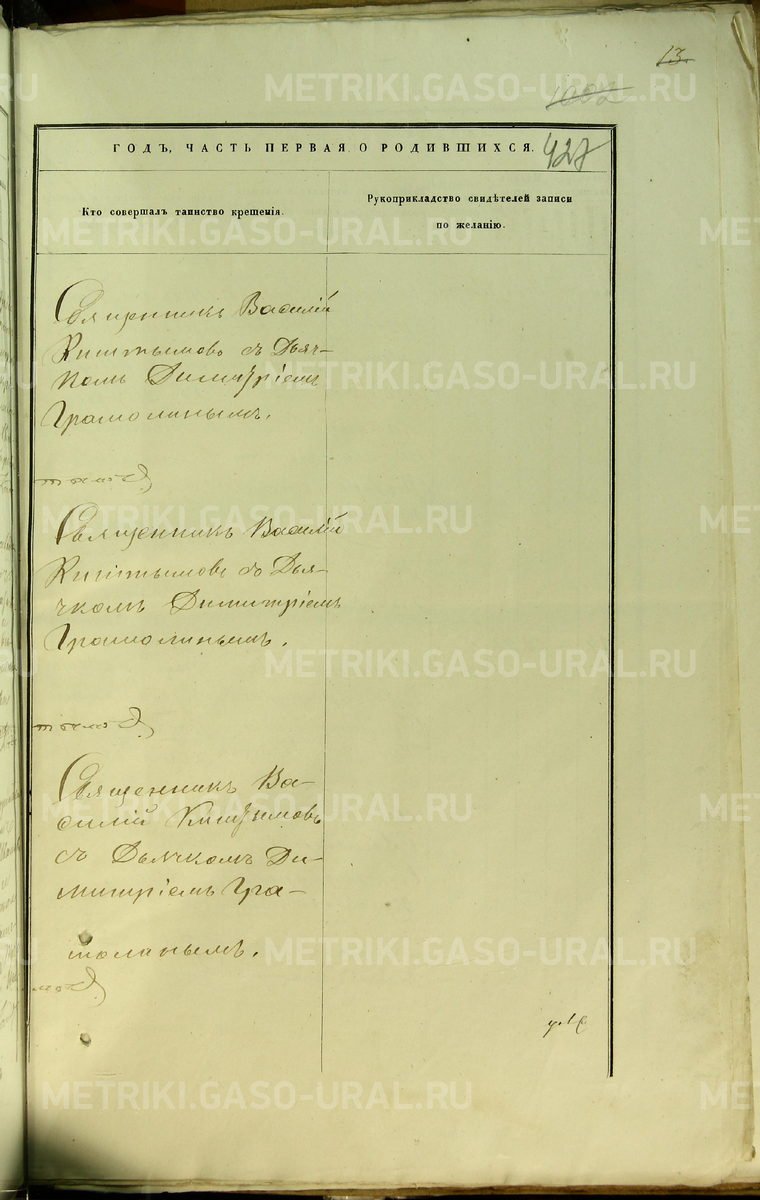 13.
1002
427
ГОДЪ, ЧАСТЬ ПЕРВАЯ О РОДИВШИХСЯ.
Кто совершалъ таинство крещенія.
Рукоприкладство свидѣтелей записи
по желанію.
Священникъ Василій
Киштымовъ съ Дьяч-
комъ Димитріемъ
Грамолинымъ.
Священникъ Василій
Киштымовъ съ Дья-
чкомъ Димитріемъ
Грамолинымъ.
Священникъ Ва-
силій Киштымовъ
съ Дьячкомъ Ди-
митріемъ Гра-
молинымъ.
METRIKI.GASO-URAL.RU